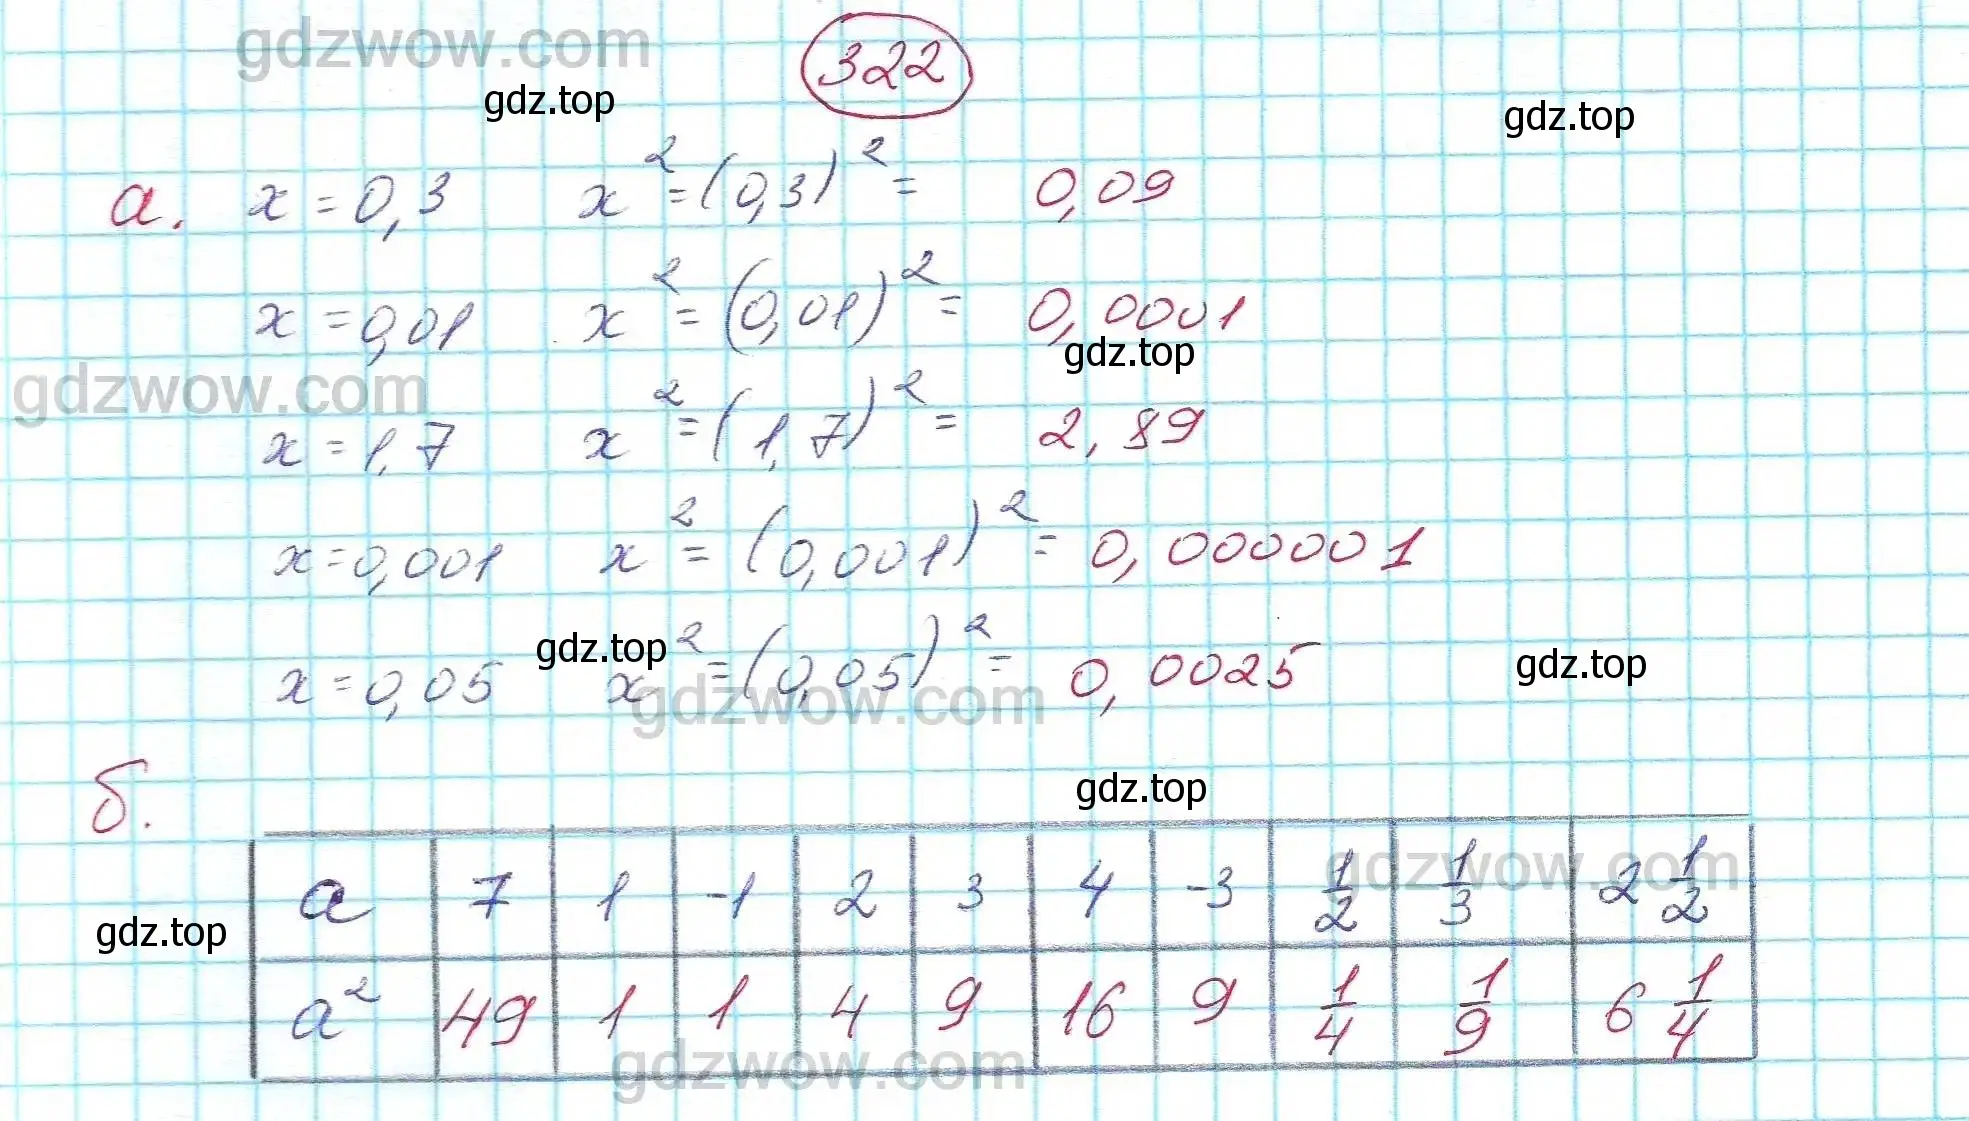 gdzwow.com
322
gdz.top
gdz.top
а. x = 0,3 x² = (0,3)² = 0,09
x = 0,01 x² = (0,01)² = 0,0001
gdz.top
gdzwow.com
x = 1,7 x² = (1,7)² = 2,89
x = 0,001 x² = (0,001)² = 0,000001
gdz.top
gdz.top
x = 0,05 x² = (0,05)² = 0,0025
gdzwow.com
б.
gdz.top
gdzwow.com
a 7 1 -1 2 3 4 -3 1/2 1/3 2 1/2
gdz.top
a² 49 1 1 4 9 16 9 1/4 1/9 6 1/4
gdzwow.com